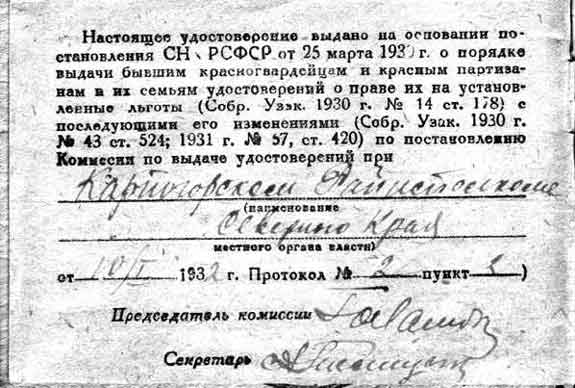 Настоящее удостоверение выдано на основании по-
становления СНК РСФСР от 25 марта 1930 г. о порядке
выдачи бывшим красногвардейцам и красным партиза-
нам и их семьям удостоверений о праве их на установ-
ленные льготы (Собр. Узак. 1930 г. № 14 ст. 178) с
последующими его изменениями (Собр. Узак. 1930 г.
№ 43 ст. 524; 1931 г. № 57, ст. 420) по постановлению
Комиссии по выдаче удостоверений при
Карпогорском Райисполкоме
(наименование
Северного Края
местного органа власти)
от 10/I 1932 г. Протокол № 2 пункт )
Председатель комиссии
Секретарь